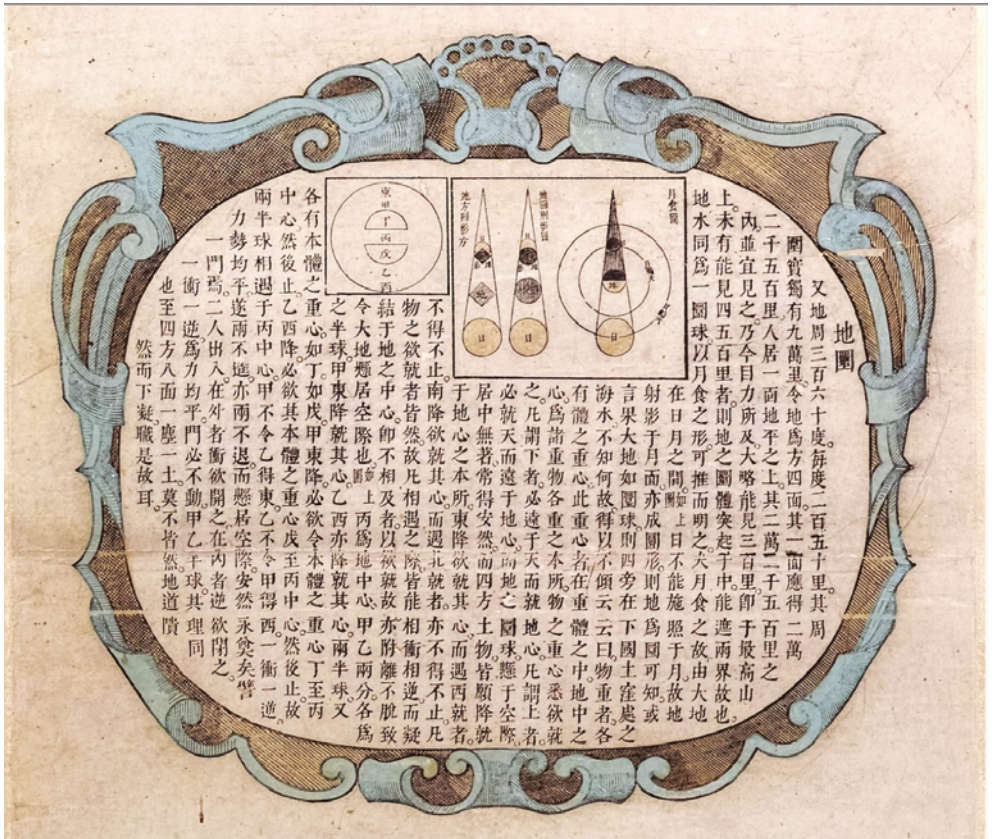 地圜
又地周三百六十度。每度二百五十里。其周
圍實獨有九萬里。令地爲方四面。其一面應得二萬
二千五百里。人居一面。地平之上。其二萬二千五百里之
內。並宜見之。乃今目力所及。大略能見三百里。卽于最高山
上。未有能見四五百里者。則地之圜體突起于中。能遮兩界故也。
地水同爲一圜球。以月食之形。可推而明之。夫月食之故。由大地
在日月之間。如上圖日不能施照于月。故地
射影于月面。亦成圜形。則地爲圜可知。或
言果大地如圜球。則四旁在下國土窪處之
海水。不知何故得以不傾云云。曰。物重者各
有體之重心。此重心者。在重體之中。地中之
心。爲諸重物各重之本所。物之重心悉欲就
之。凡謂下者。必遠于天而就地心。凡謂上者。
必就天而遠于地心。而地之圜球懸于空際。
居中無著。常得安然。而四方土物皆願降就
于地心之本所。東降欲就其心。而遇西就者。
不得不止。南降欲就其心。而遇北就者。亦不得不止。凡
物之欲就者皆然。故凡相遇之際。皆能相衝相逆。而凝
結于地之中心。卽不相及者。以欲就故。亦附離不脫。致
令大地懸居空際也。如上圖丙爲地中心。甲乙兩分。各爲
之半球。甲東降就其心。乙西亦降就其心。兩半球又
各有本體之重心。如丁如戊。甲東降必欲令本體之重心丁至丙
中心然後止。乙酉降必欲其本體之重心戊至丙中心然後止。故
兩半球相遇于丙中心。甲不令乙得東。乙不令甲得西。一衝一逆。
力勢均平。遂兩不進。亦兩不退。而懸居空際。安然永奠矣。譬
一門焉。二人出入。在外者衝欲開之。在內者逆欲閉之。
一衝一逆。爲力均平。門必不動。甲乙半球。其理同
也。至四方八面。一塵一土。莫不皆然。地道隤
然而下凝。職是故耳。
月食圖
地圜則影圜
日
日
地方則影方
日
東
甲
丁
丙
戊
乙
酉